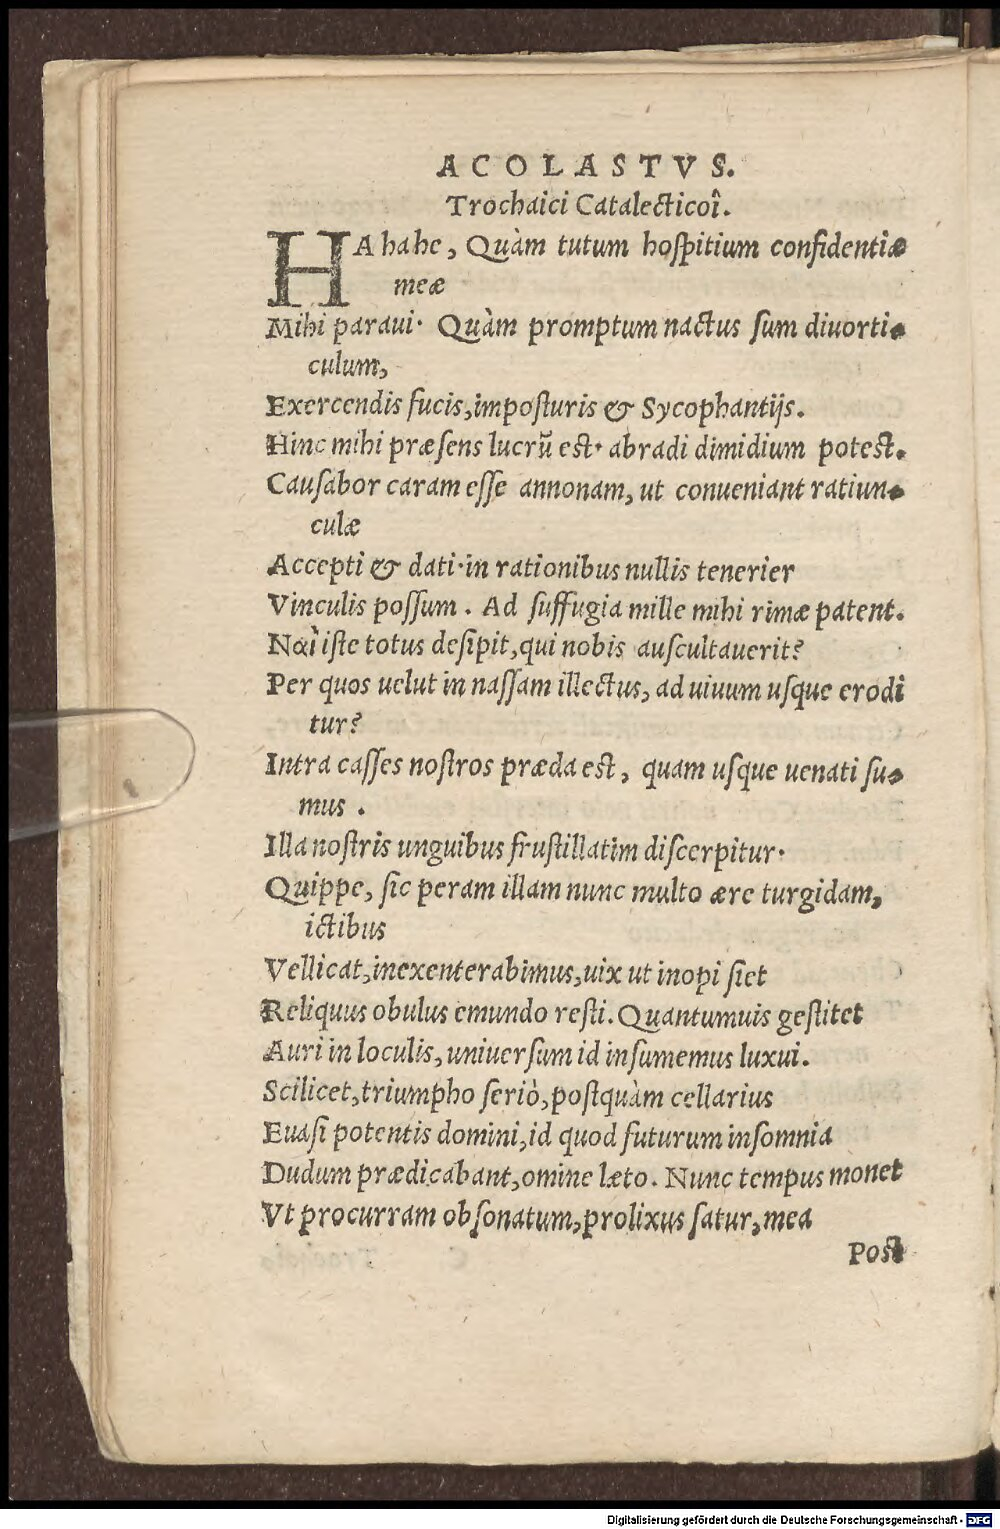 ACOLASTVS.
Trochaici Catalecticoî.
HA hahe, Quàm tutum hoſpitium confidentiæ
meæ
Mihi paraui· Quàm promptum nactus ſum diuorti-
culum,
Exercendis fucis, impoſturis & Sycophantijs.
Hinc mihi præſens lucrũ est· abradi dimidium potest.
Cauſabor caram eſſe annonam, ut conueniant ratiun-
culæ
Accepti & dati·in rationibus nullis tenerier
Vinculis poſſum. Ad ſuffugia mille mihi rimæ patent.
Nαὶ iſte totus deſipit, qui nobis auſcultauerit?
Per quos uelut in naſſam illectus, ad uiuum uſque erodi
tur?
Intra caſſes noſtros præda est, quam uſque uenati ſu-
mus.
Illa noſtris unguibus fruſtillatim diſcerpitur·
Quippe, ſic peram illam nunc multo ære turgidam,
ictibus
Vellicat, inexenterabimus, uix ut inopi ſiet
Reliquus obulus emundo reſti. Quantumuis geſtitet
Auri in loculis, uniuerſum id inſumemus luxui.
Scilicet, triumpho ſeriò, poſtquàm cellarius
Euaſi potentis domini, id quod futurum inſomnia
Dudum prædicabant, omine læto. Nunc tempus monet
Vt procurram obſonatum, prolixus ſatur, mea
Post
Digitalisierung gefördert durch die Deutsche Forschungsgemeinschaft - DFG